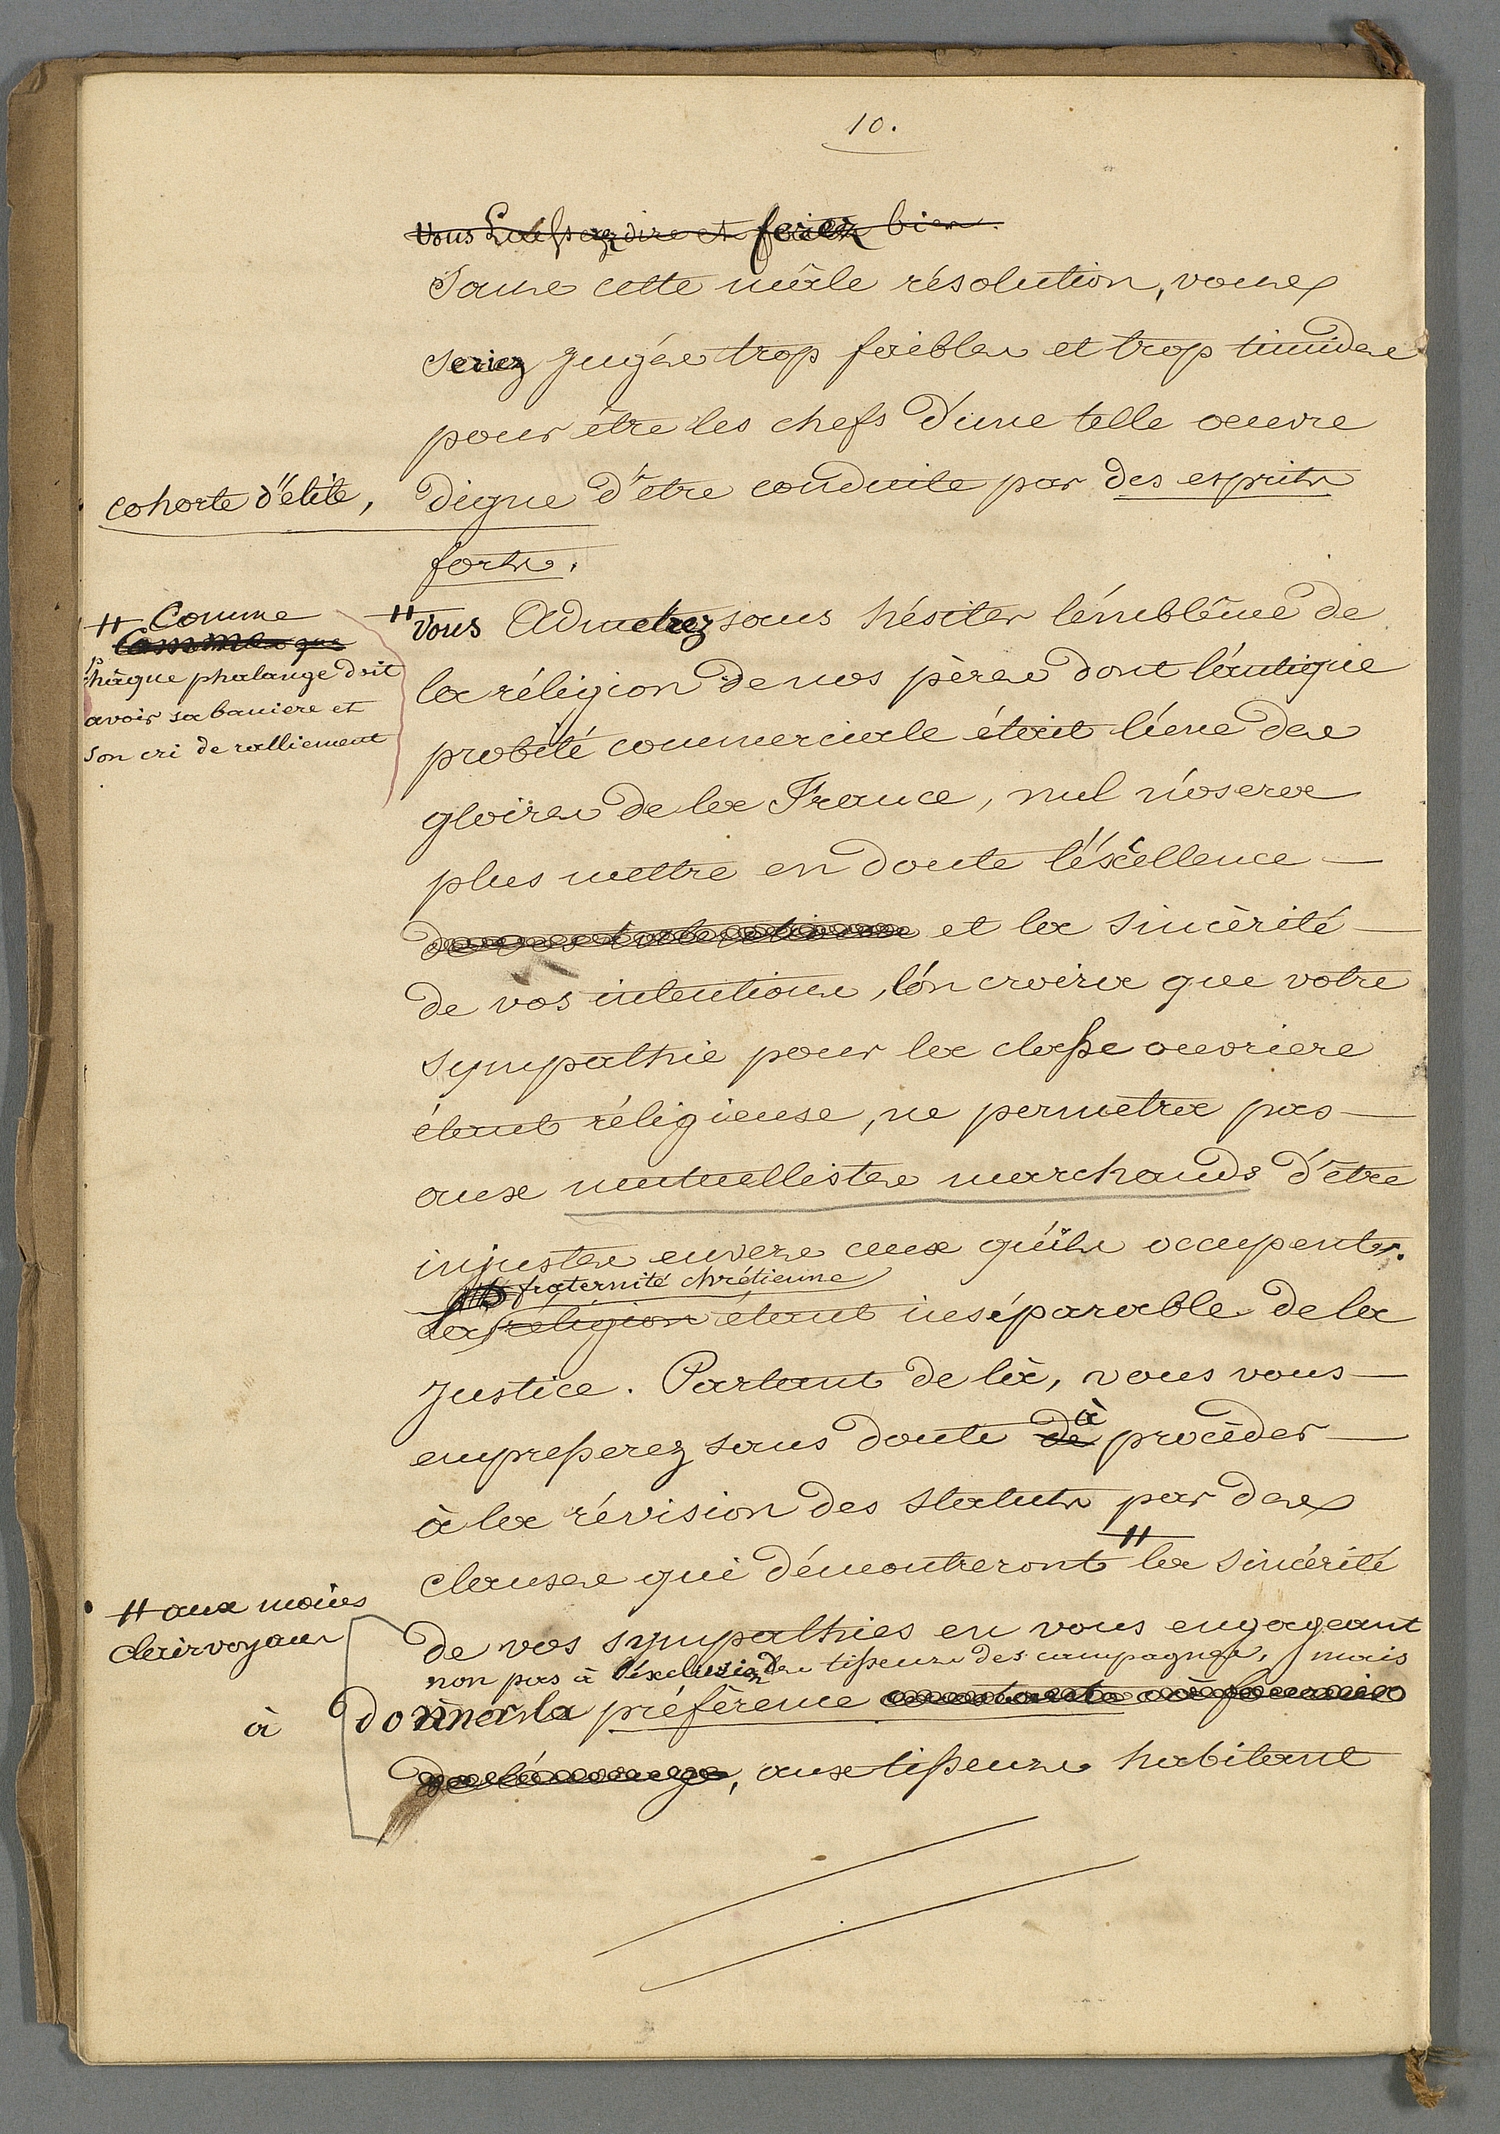 10.
vous Laissez dire et feriez bien.
Sans cette mâle résolution, vous
seriez jugés trop faibles et trop timides
pour être les chefs d'une telle oeuvre
cohorte d'élite,
digne d'être conduite par des esprits
forts.
# Comme
Comme que
châque phalange doit
avoir sa baniere et
son cri de ralliement
# Vous Admetrez sans hésiter l'émblême de
la réligion de nos pères dont l'antique
probité commerciale était l'une des
gloires de la France, nul n'osera
plus mettre en doute l'éxcellence —
et la sincèrité —
de vos intentions, l'on croira que votre
sympathie pour la classe ouvriere
étant réligieuse, ne permetra pas —
aux mutuellistes marchands d'être
injustes envers ceux qu'ils occupent.
fraternité chrétienne
la réligion étant inséparable de la
justice. Partant de là, vous vous —
empresserez sans doute de à procèder —
à la révision des statuts par des
clauses qui démontreront # la sincérité
# aux moins
clairvoyans
de vos sympathies en vous engageant
non pas à l'éxclusion des tisseurs des campagnes, mais
à donner la préférence
, aux tisseurs habitant